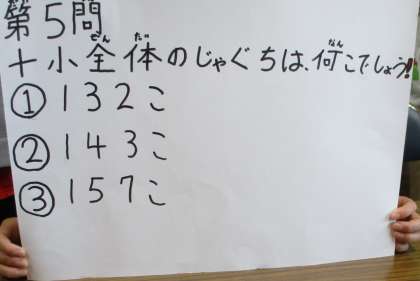 第5問
十小全体のじゃぐちは、何こでしょう!!
①132こ
②143こ
③157こ